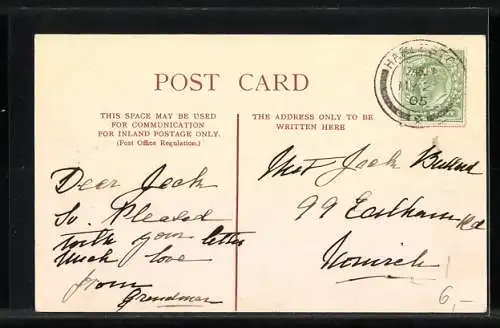 POST CARD
THIS SPACE MAY BE USED
FOR COMMUNICATION
FOR INLAND POSTAGE ONLY.
(Post Office Regulation.)
THE ADDRESS ONLY TO BE
WRITTEN HERE
05
Dear Jack
So Pleased
with your letter
Much love
from
Grandma
Jack
99 Eastham Rd
Norwich
6,-